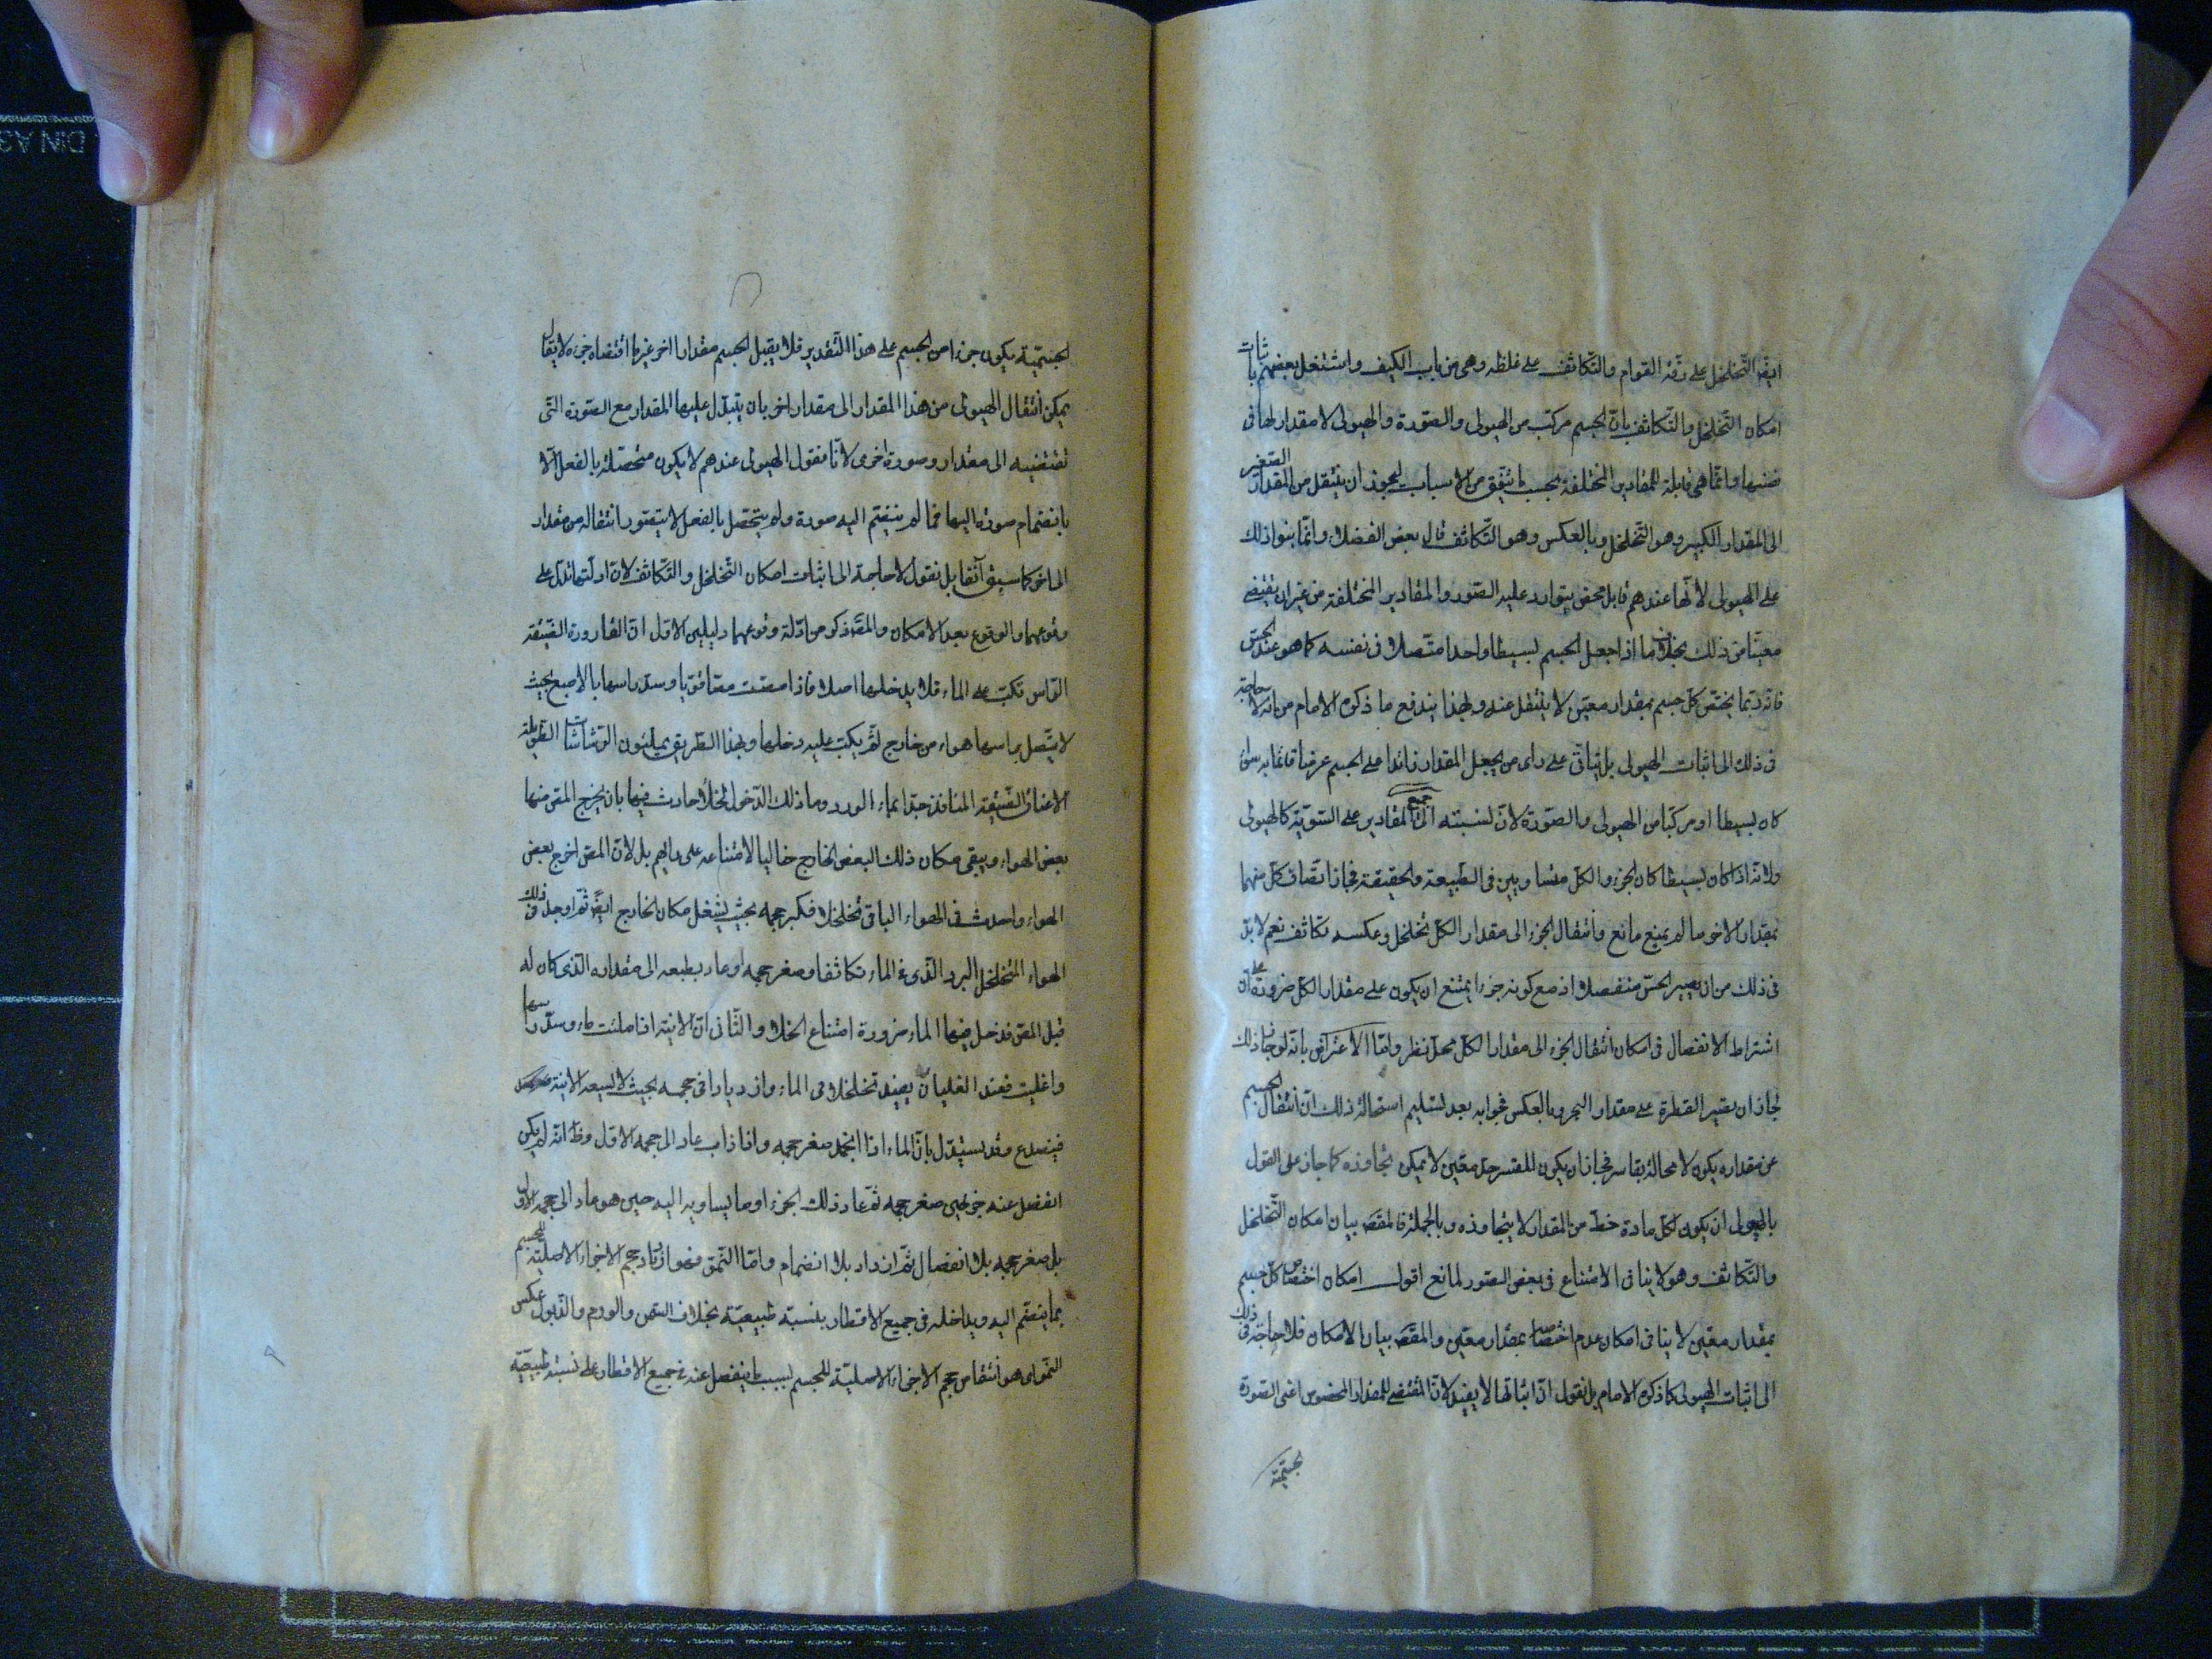 ايضا التخلخل على رقة القوام والتكاثف على غلظه وهى من باب الكيف واشتغل بعضهم باثبات
امكان التخلخل والتكاثف بان الجسم مركب من الهيولى والصورة والهيولى لا مقدار لها فى
نفسها وانما هى قابلة للمقادير المختلفة بحسب ما يتفق من الاسباب فيجوز ان ينتقل من المقدار الصغير
الى المقدار الكبير وهو التخلخل وبالعكس وهو التكاثف قال بعض الفضلاء وانما بنوا ذلك
على الهيولى لانها عندهم قابل محض يتوارد عليه الصور والمقادير المختلفة من غير ان يقتضى
معينا من ذلك بخلاف ما اذا جعل الجسم بسيطا واحدا متصلا فى نفسه كما هو عند الحس
فانه ربما يختص كل جسم بمقدار معين لا ينتقل عنه وبهذا يندفع ما ذكره الامام من انه لا حاجة
فى ذلك الى اثبات الهيولى بل يتأتى على راى من يجعل المقدار زائدا على الجسم عرضا قائما به سواء
كان بسيطا او مركبا من الهيولى والصورة لان نسبته الى جميع المقادير على السوية كالهيولى
ولانه اذا كان بسيطا كان الجزء والكل متساويين فى الطبيعة والحقيقة فجاز اتصاف كل منهما
بمقدار الاخر ما لم يمنع مانع وانتقال الجزء الى مقدار الكل تخلخل وعكسه تكاثف نعم لا بد
فى ذلك من ان يصير الجزء منفصلا اذ مع كونه جزءا يمتنع ان يكون على مقدار الكل ضرورة على ان
اشتراط الانفصال فى امكان انتقال الجزء الى مقدار الكل محل نظر واما الاعتراض بانه لو جاز ذلك
لجاز ان يصير القطرة على مقدار البحر وبالعكس فجوابه بعد تسليم استحالة ذلك ان انتقال الجسم
عن مقداره يكون لا محالة بقاسر فجاز ان يكون للقسر حد معين لا يمكن تجاوزه كما جاز على القول
بالهيولى ان يكون لكل مادة حظ من المقدار لا يتجاوزه وبالجملة فالمقص بيان امكان التخلخل
والتكاثف وهو لا ينافى الامتناع فى بعض الصور لمانع اقول امكان اختصاص كل جسم
بمقدار معين لا ينافى امكان عدم اختصاصه بمقدار معين والمقص بيان الامكان فلا حاجة فى ذلك
الى اثبات الهيولى كما ذكره الامام بل نقول ان اثباتها لا يفيد لان المقتضى للمقدار المخصوص اعنى الصورة
الجسمية
الجسمية يكون جزءا من الجسم على هذا التقدير فلا يقبل الجسم مقدارا اخر غير ما اقتضاه جزءه لا يقال
يمكن انتقال الهيولى من هذا المقدار الى مقدار اخر بان يتبدل عليها المقدار مع الصورة التى
تقتضيه الى مقدار وصورة اخرى لانا نقول الهيولى عندهم لا يكون متحصلة بالفعل الا
بانضمام صورة اليها فما لم ينضم اليه صورة ولم يتحصل بالفعل لا يتصور انتقاله من مقدار
الى اخر كما سبق آنفا بل نقول لا حاجة الى اثبات امكان التخلخل والتكاثف لان ادلتهما تدل على
وقوعهما والوقوع بعد الامكان والمص ذكر من ادلة وقوعهما دليلين الاول ان القارورة الضيقة
الراس تكب على الماء فلا يدخلها اصلا فاذا مصت مصا قويا وسد راسها بالاصبع بحيث
لا يتصل براسها هواء من خارج ثم يكب عليه دخلها وبهذا الطريق يملئون الرشاشات الطويلة
الاعناق الضيقة المنافذ جدا بماء الورد وما ذلك الدخول لخلاء حادث فيها بان يخرج المص منها
بعض الهواء ويبقى مكان ذلك البعض الخارج خاليا لامتناعه على رايهم بل لان المص اخرج بعض
الهواء واحدث فى الهواء الباقى تخلخلا فكبر حجمه بحيث يشغل مكان الخارج ايضا ثم اوجد فى ذلك
الهواء المتخلخل البرد الذى فى الماء تكاثفا وصغر حجمه او عاد بطبعه الى مقداره الذى كان له
قبل المص فدخل فيها الماء ضرورة امتناع الخلاء والثانى ان الانية اذا ملئت ماء وسد راسها
واغليت فعند الغليان يفيد تخلخلا فى الماء وازديادا فى حجمه بحيث لا يسعه الانية
فينصدع وقد يستدل بان الماء اذا انجمد صغر حجمه واذا ذاب عاد الى حجمه الاول وظ انه لم يكن
انفصل عنه جزء حين صغر حجمه ثم عاد ذلك الجزء او ما يساويه اليه حين هو عاد الى حجمه الاول
بل صغر حجمه بلا انفصال ثم ازداد بلا انضمام واما النمو فهو ازدياد حجم الاجزاء الاصلية للجسم
بما ينضم اليه ويداخله فى جميع الاقطار بنسبة طبيعية بخلاف السمن والورم والذبول عكس
النمو اى هو انتقاص حجم الاجزاء الاصلية للجسم بسبب ما ينفصل عنه فى جميع الاقطار على نسبة طبيعية